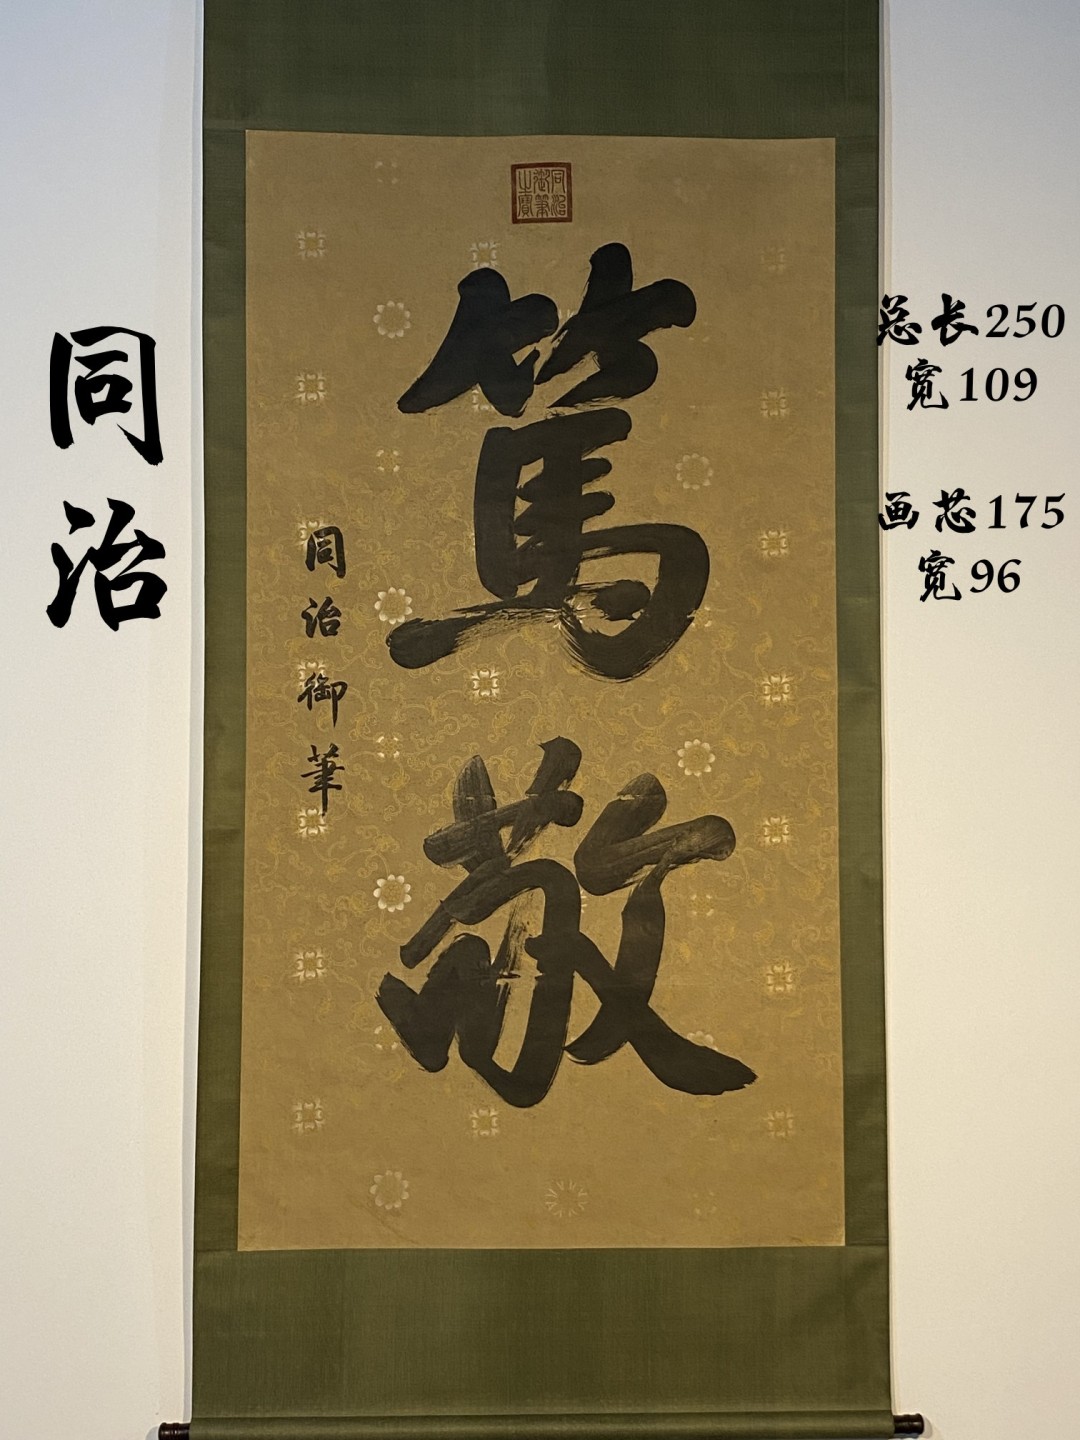 同治
总长250
宽109
画芯175
宽96
同治御筆之寶
篤敬
同治御筆